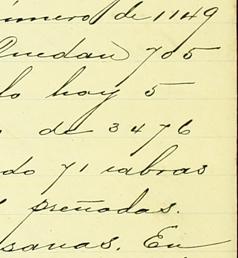 número de 1149
Quedan 705
lo hoy 5
de 3476
do 71 cabras
preñadas.
sanas. En